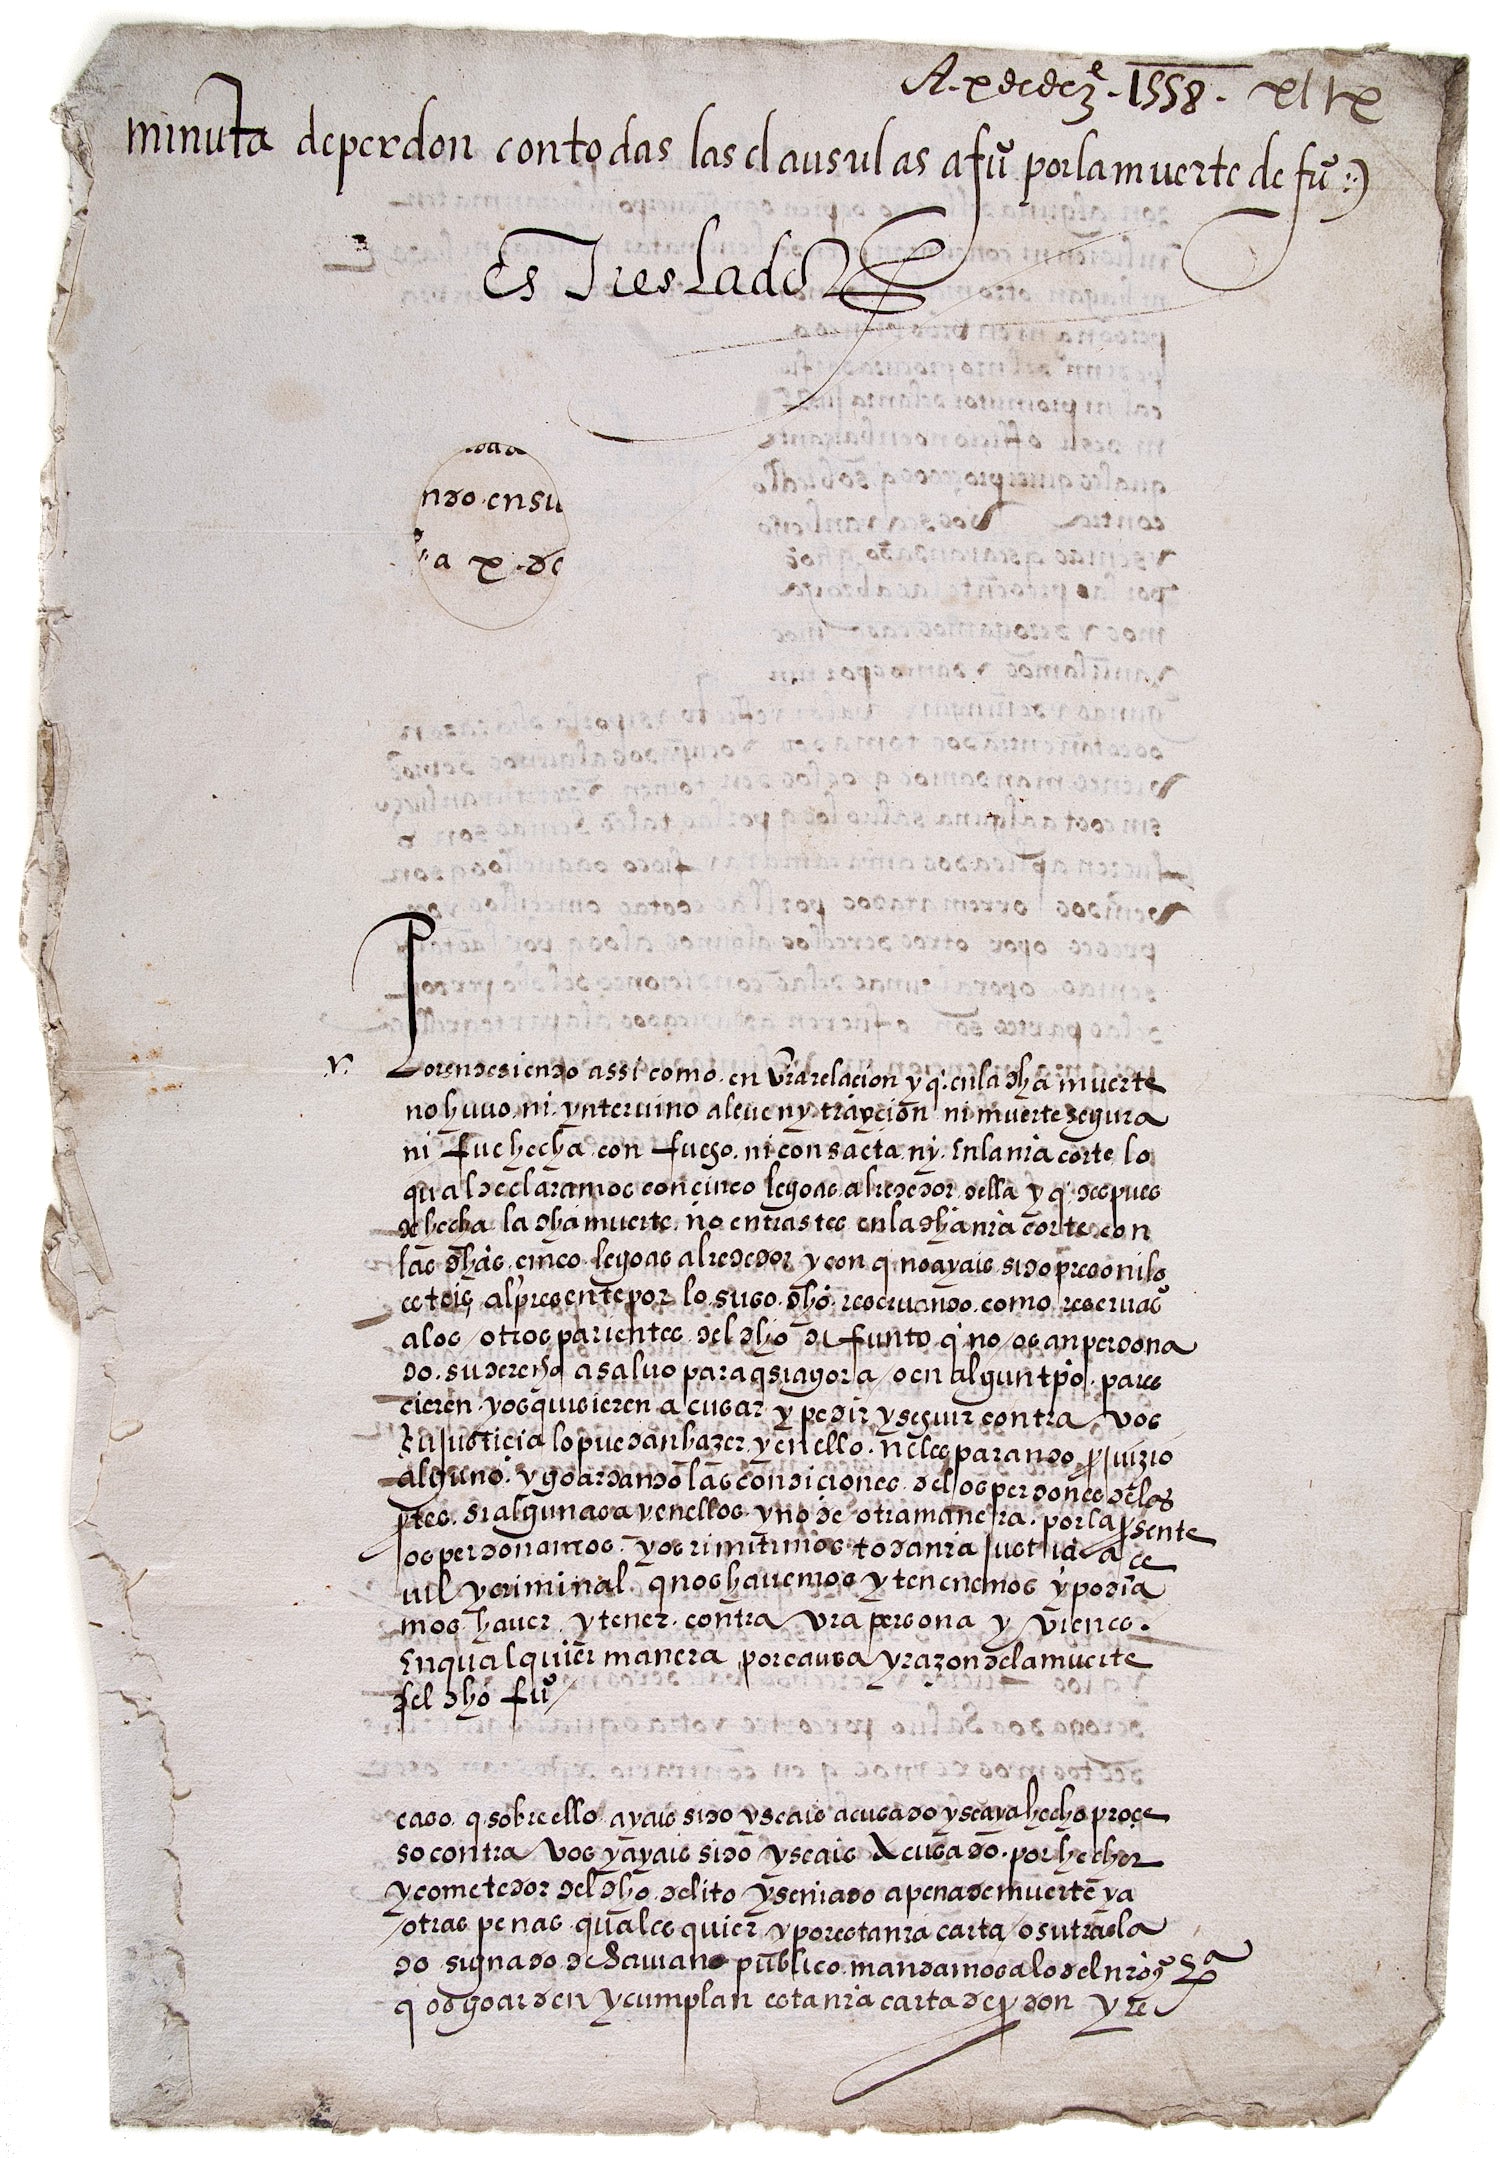 A. x de dez.e 1558.
minuta de perdon con todas las clausulas a fu.º por la muerte de fu.º
Es Treslado
ndo ensu
a x. de
Porende siendo assi como en vra relacion y q. en la dha muerte
no huuo ni ynteruino aleue ny trayçion ni muerte segura
ni fue hecha con fuego. ni con saeta ny. en la nra corte lo
qual declaramos con çinco legoas alrededor della y q despues
de hecha la dha muerte. no entrastes en la dha nra corte con
las dhas çinco legoas alrededor y con q no ayais sido preso ni lo
esteis al presente por lo suso dho reseruando como reseruamos
a los otros parientes del dho difunto q no os an perdona
do. su derecho a saluo para q si agora o en algun tpo. pares
cieren y os quisieren acusar y pedir y seguir contra vos
su justicia lo puedan hazer y en ello. no les parando pjuizio
alguno. y goardando las condiciones de los perdones de las
ptes. si algunas ay en ellos. y no de otra manera. por la psente
os perdonamos. y os rimitimos toda nra justiçia çe
uil y criminal. q nos hauemos y tenenemos y podria
mos hauer y tener contra vra persona y vienes.
En qualquier manera por causa y razon de la muerte
del dho fu.º
caso q sobre ello ayais sido y seais acusado y se aya hecho proçe
so contra vos y ayais sido y seais Acusado. por hechor
y cometedor del dho delito y seniado a pena de muerte y a
otras penas quales quier y por esta nra carta o su trasla
do signado de scriuano publico. mandamos a los del nro
q os goarden y cumplan esta nra carta de pdon y re